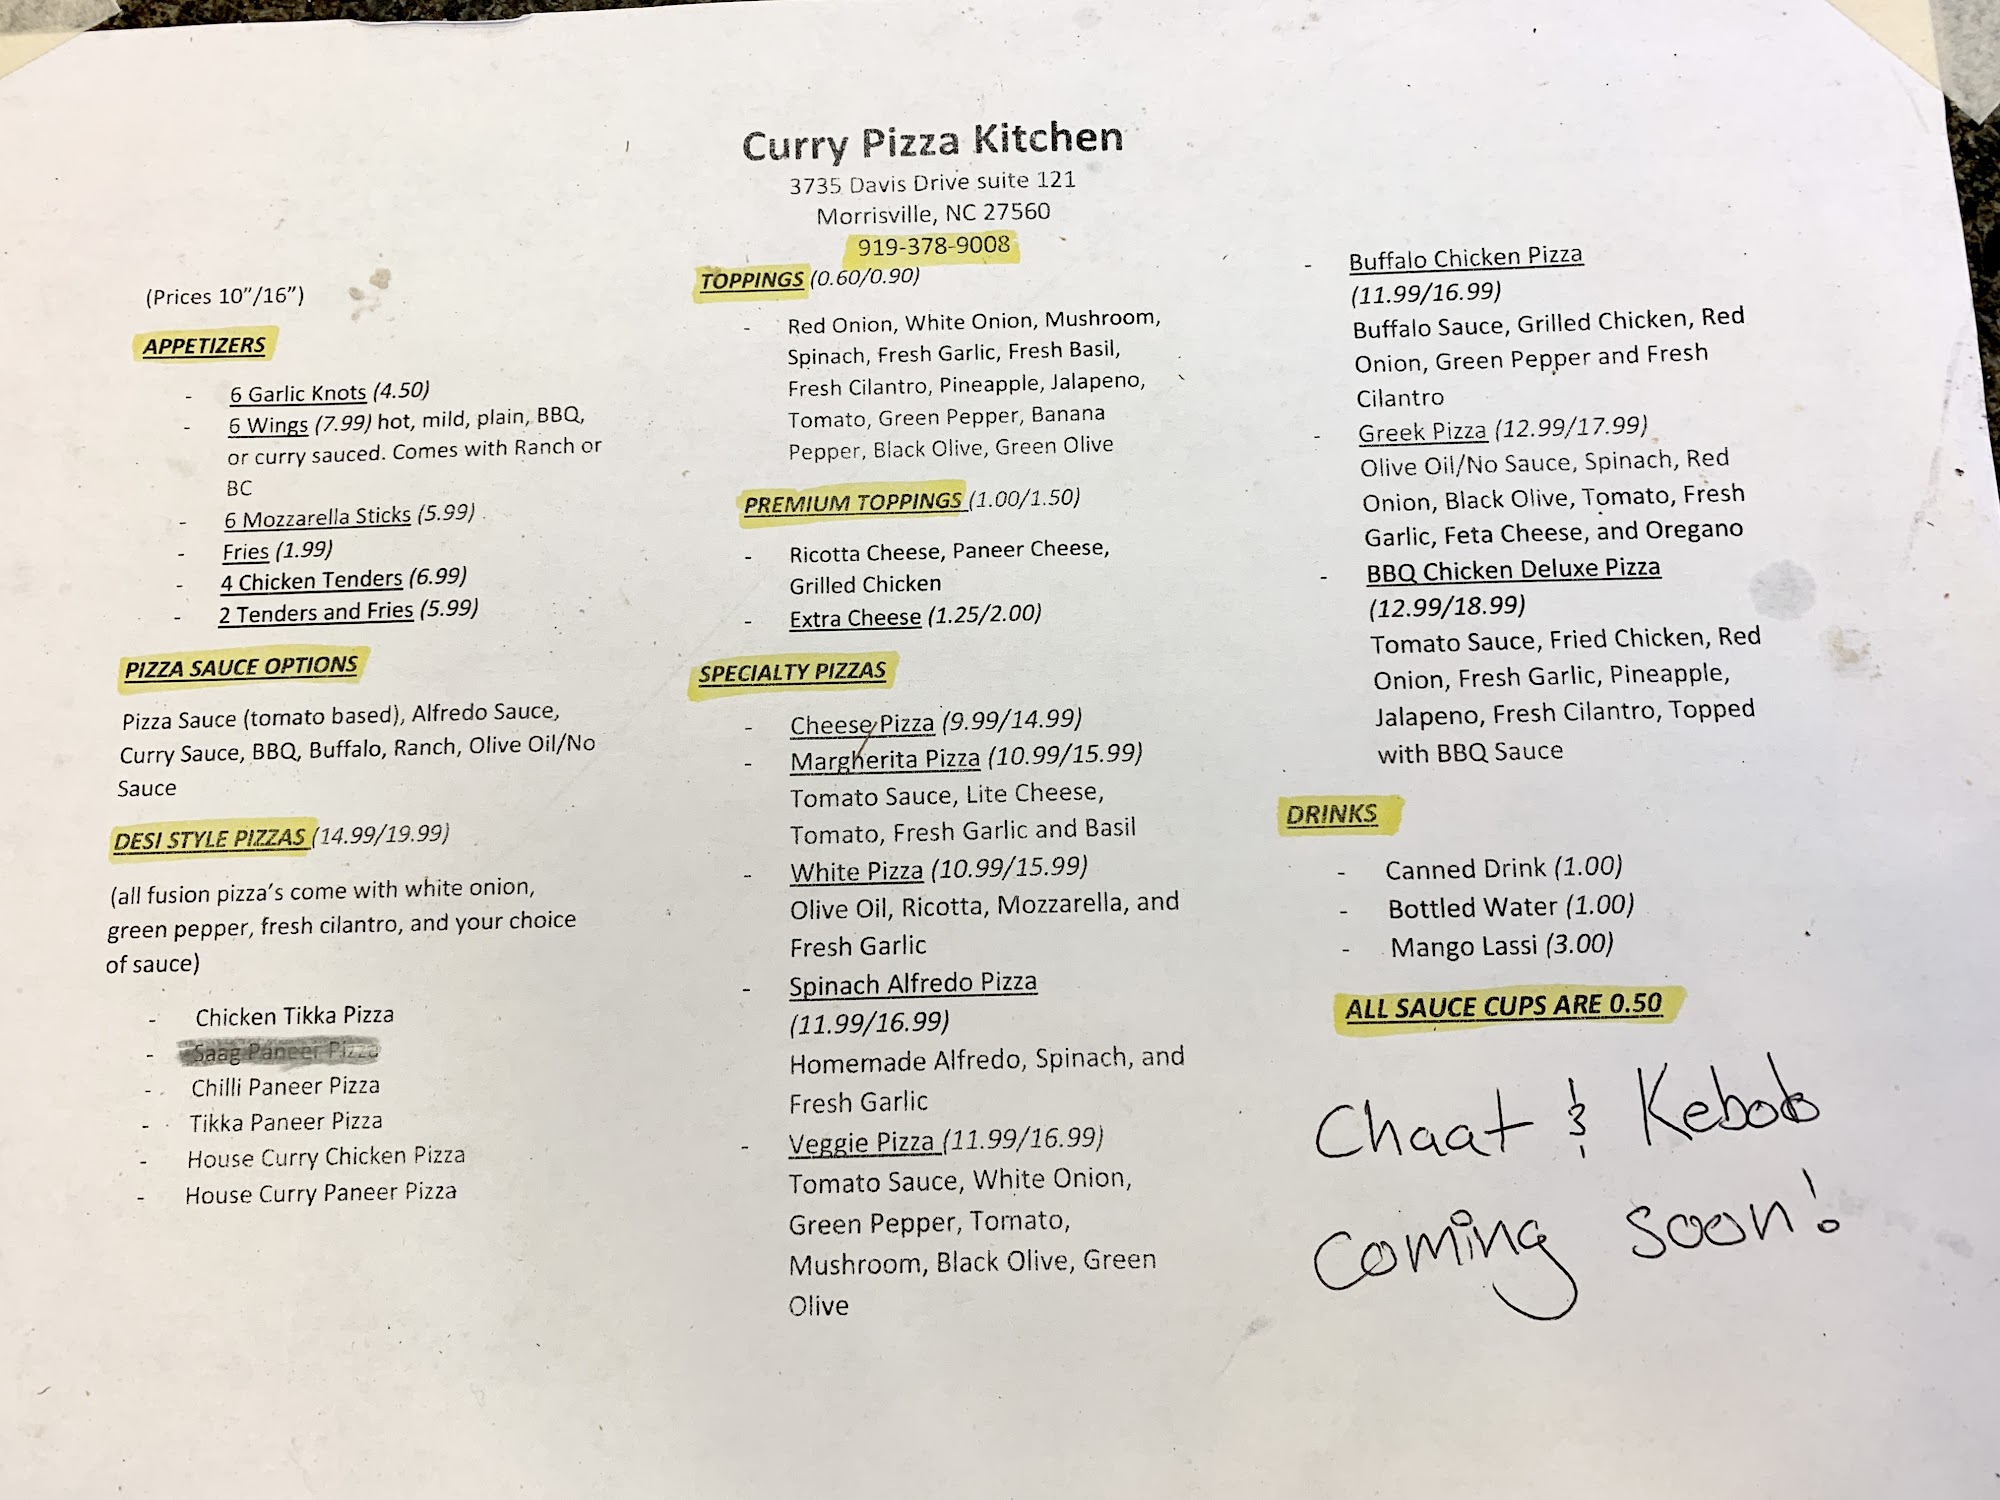 Curry Pizza Kitchen
3735 Davis Drive suite 121
Morrisville, NC 27560
919-378-9008
(Prices 10”/16”)
APPETIZERS
- 6 Garlic Knots (4.50)
- 6 Wings (7.99) hot, mild, plain, BBQ,
or curry sauced. Comes with Ranch or
BC
- 6 Mozzarella Sticks (5.99)
- Fries (1.99)
- 4 Chicken Tenders (6.99)
- 2 Tenders and Fries (5.99)
PIZZA SAUCE OPTIONS
Pizza Sauce (tomato based), Alfredo Sauce,
Curry Sauce, BBQ, Buffalo, Ranch, Olive Oil/No
Sauce
DESI STYLE PIZZAS (14.99/19.99)
(all fusion pizza’s come with white onion,
green pepper, fresh cilantro, and your choice
of sauce)
- Chicken Tikka Pizza
- Saag Paneer Pizza
- Chilli Paneer Pizza
- Tikka Paneer Pizza
- House Curry Chicken Pizza
- House Curry Paneer Pizza
TOPPINGS (0.60/0.90)
- Red Onion, White Onion, Mushroom,
Spinach, Fresh Garlic, Fresh Basil,
Fresh Cilantro, Pineapple, Jalapeno,
Tomato, Green Pepper, Banana
Pepper, Black Olive, Green Olive
PREMIUM TOPPINGS (1.00/1.50)
- Ricotta Cheese, Paneer Cheese,
Grilled Chicken
- Extra Cheese (1.25/2.00)
SPECIALTY PIZZAS
- Cheese Pizza (9.99/14.99)
- Margherita Pizza (10.99/15.99)
Tomato Sauce, Lite Cheese,
Tomato, Fresh Garlic and Basil
- White Pizza (10.99/15.99)
Olive Oil, Ricotta, Mozzarella, and
Fresh Garlic
- Spinach Alfredo Pizza
(11.99/16.99)
Homemade Alfredo, Spinach, and
Fresh Garlic
- Veggie Pizza (11.99/16.99)
Tomato Sauce, White Onion,
Green Pepper, Tomato,
Mushroom, Black Olive, Green
Olive
- Buffalo Chicken Pizza
(11.99/16.99)
Buffalo Sauce, Grilled Chicken, Red
Onion, Green Pepper and Fresh
Cilantro
- Greek Pizza (12.99/17.99)
Olive Oil/No Sauce, Spinach, Red
Onion, Black Olive, Tomato, Fresh
Garlic, Feta Cheese, and Oregano
- BBQ Chicken Deluxe Pizza
(12.99/18.99)
Tomato Sauce, Fried Chicken, Red
Onion, Fresh Garlic, Pineapple,
Jalapeno, Fresh Cilantro, Topped
with BBQ Sauce
DRINKS
- Canned Drink (1.00)
- Bottled Water (1.00)
- Mango Lassi (3.00)
ALL SAUCE CUPS ARE 0.50
Chaat & Kebob
coming soon!